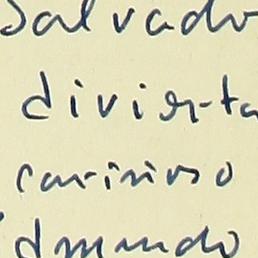 Salvado
divier-ta
cariñoso
dmundo